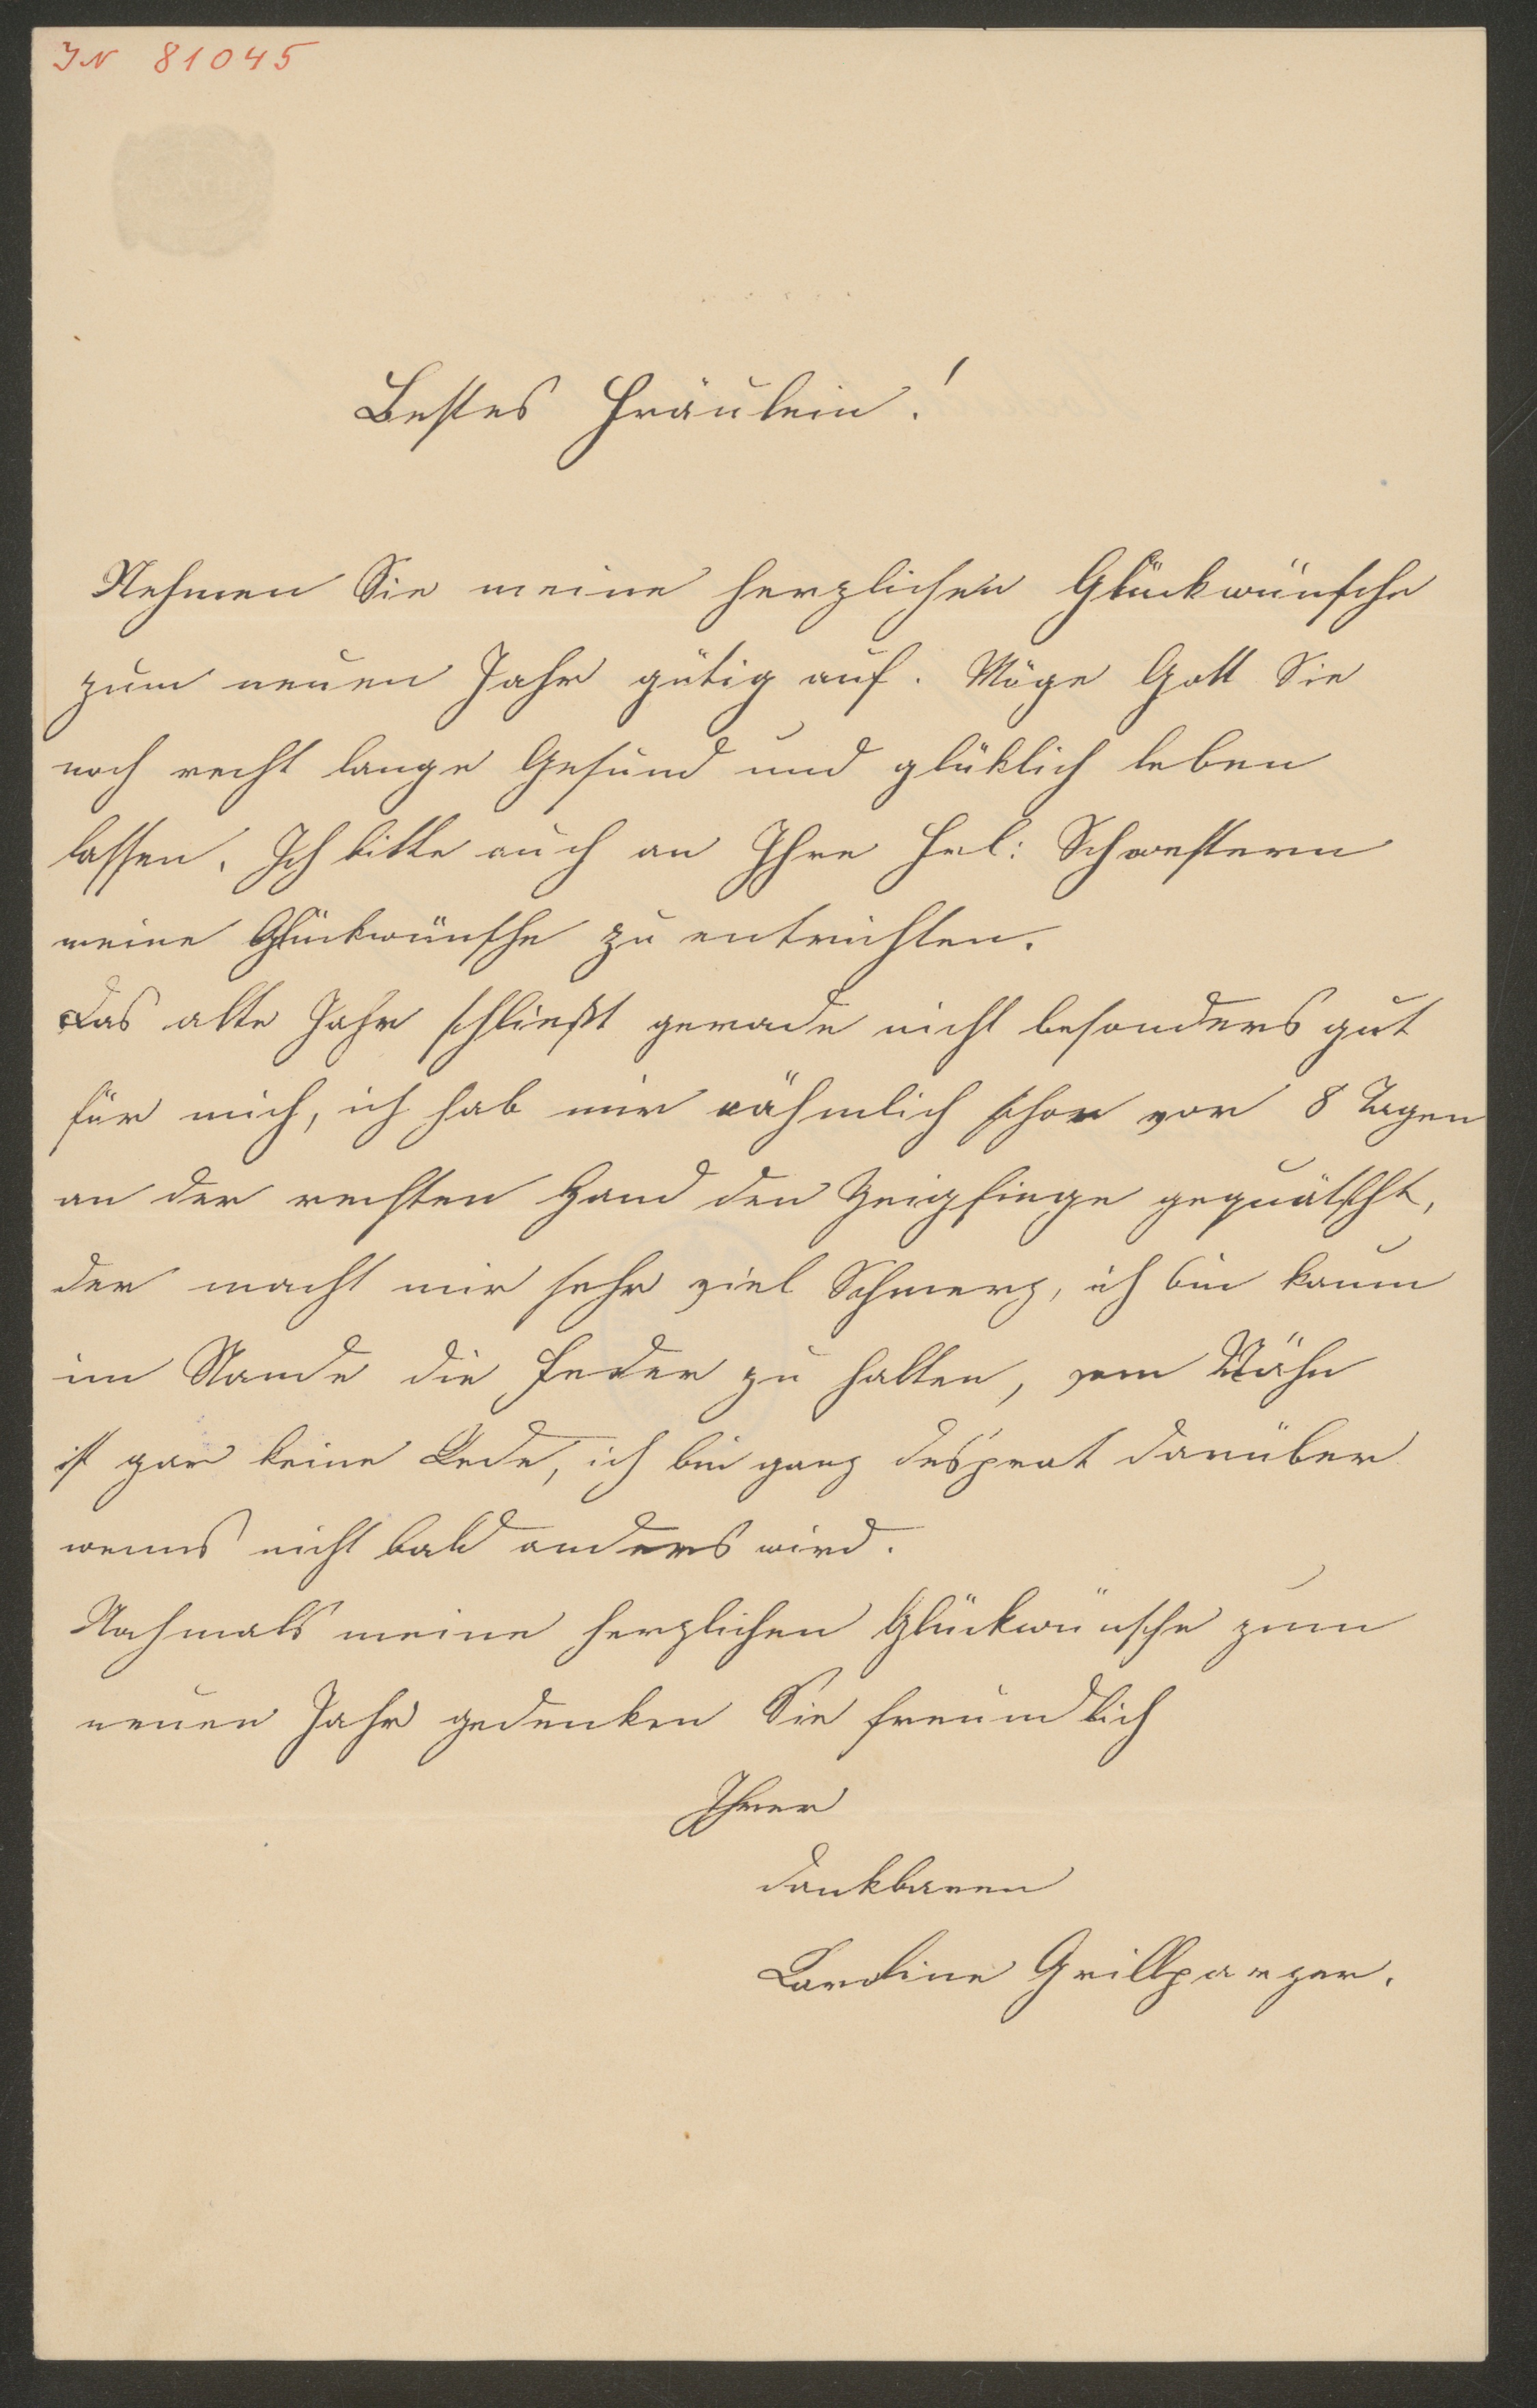 IN 81045
Bestes Fräulein!
Nehmen Sie meine herzlichen Glückwünsche
zum neuen Jahr gütig auf. Möge Gott Sie
noch recht lange Gesund und glüklich leben
lassen. Ich bitte auch an Ihre Frl: Schwestern
meine Glückwünsche zu entrichten.
Das alte Jahr schließt gerade nicht besonders gut
für mich, ich hab mir nähmlich schon vor 8 Tagen
an der rechten Hand den Zeigfinge gequätscht,
der macht mir sehr viel Schmerz, ich bin kaum
im Stande die Feder zu halten, vom Nähn
ist gar keine Rede, ich bin ganz desperat darüber
wenns nicht bald anders wird.
Nochmals meine herzlichen Glückwünsche zum
neuen Jahr gedenken Sie freundlich
Ihrer
dankbaren
Caroline Grillparzer.